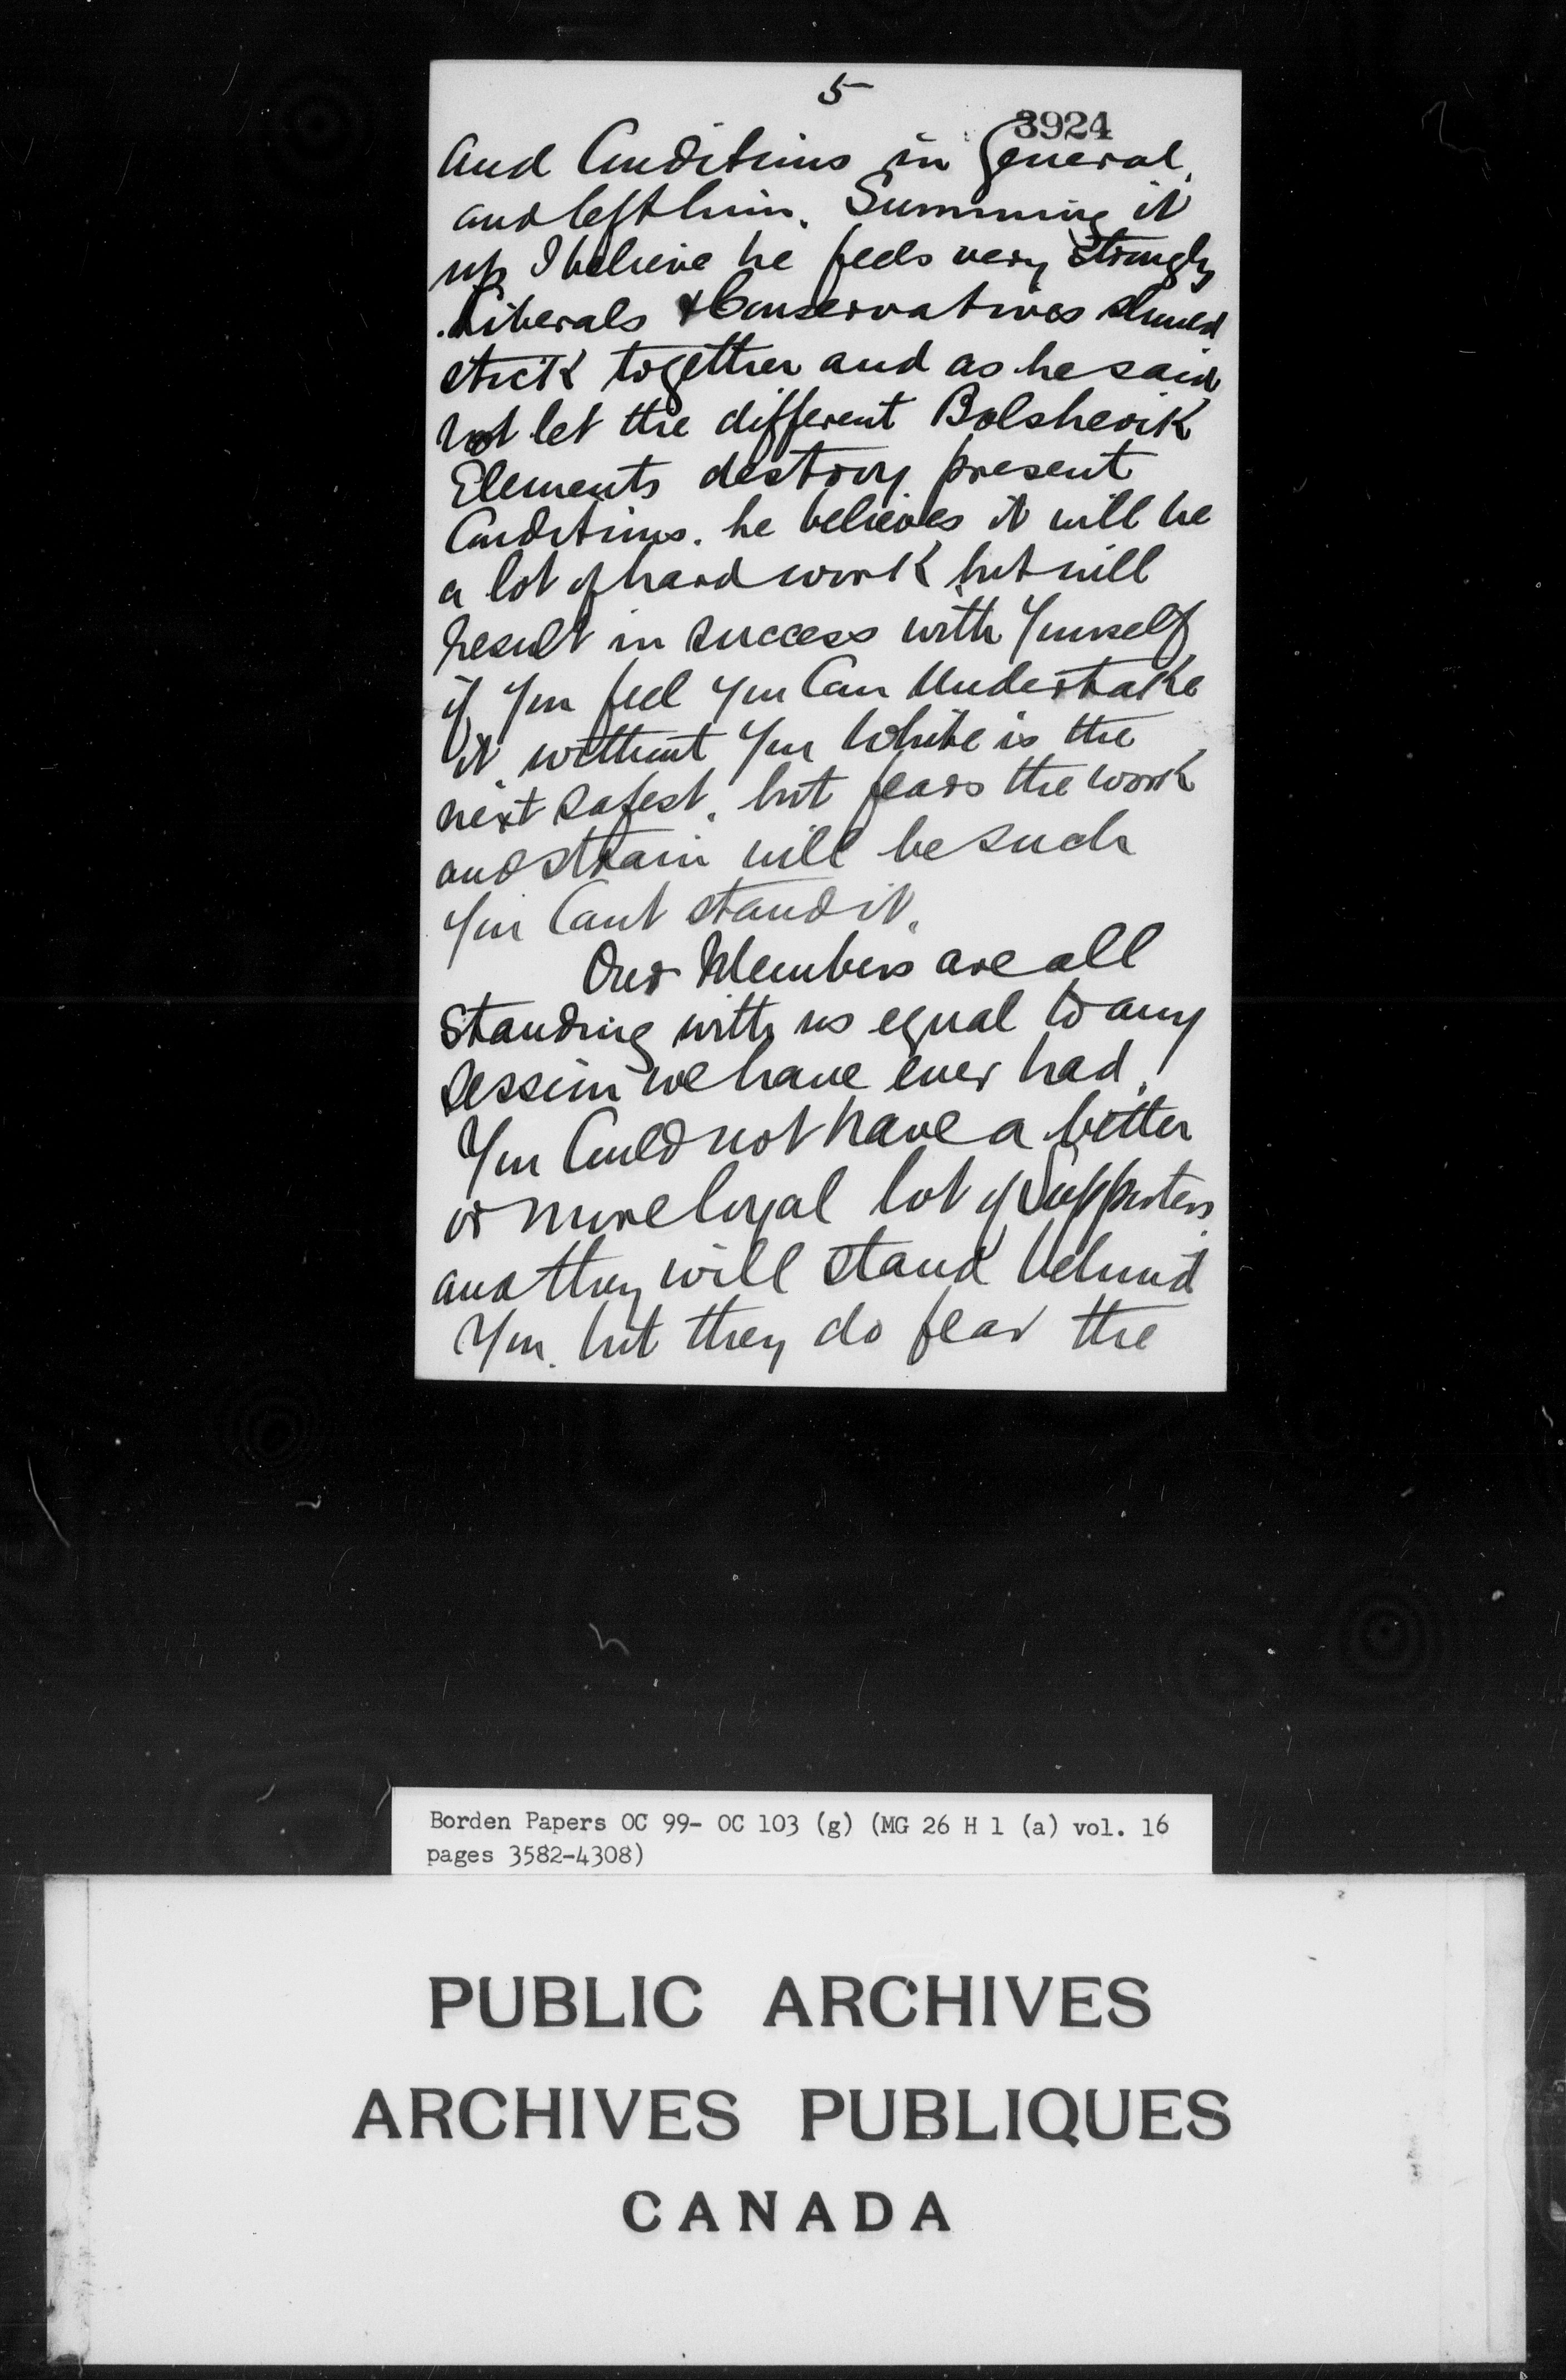 5
3924
and Conditions in General.
and left him. Summing it
up I believe he feels very strongly
Liberals & Conservatives should
stick together and as he said
not let the different Bolshevik
Elements destroy present
Conditions. he believes it will be
a lot of hard work but will
result in success with Yourself
if You feel you Can Undertake
it. without You White is the
next safest. but fears the work
and strain will be such
You Cant stand it.
Our Members are all
standing with us equal to any
session we have ever had.
You Could not have a better
or more loyal lot of Supporters
and they will stand behind
You. but they do fear the
Borden Papers OC 99- OC 103 (g) (MG 26 H 1 (a) vol. 16
pages 3582-4308)
PUBLIC ARCHIVES
ARCHIVES PUBLIQUES
CANADA